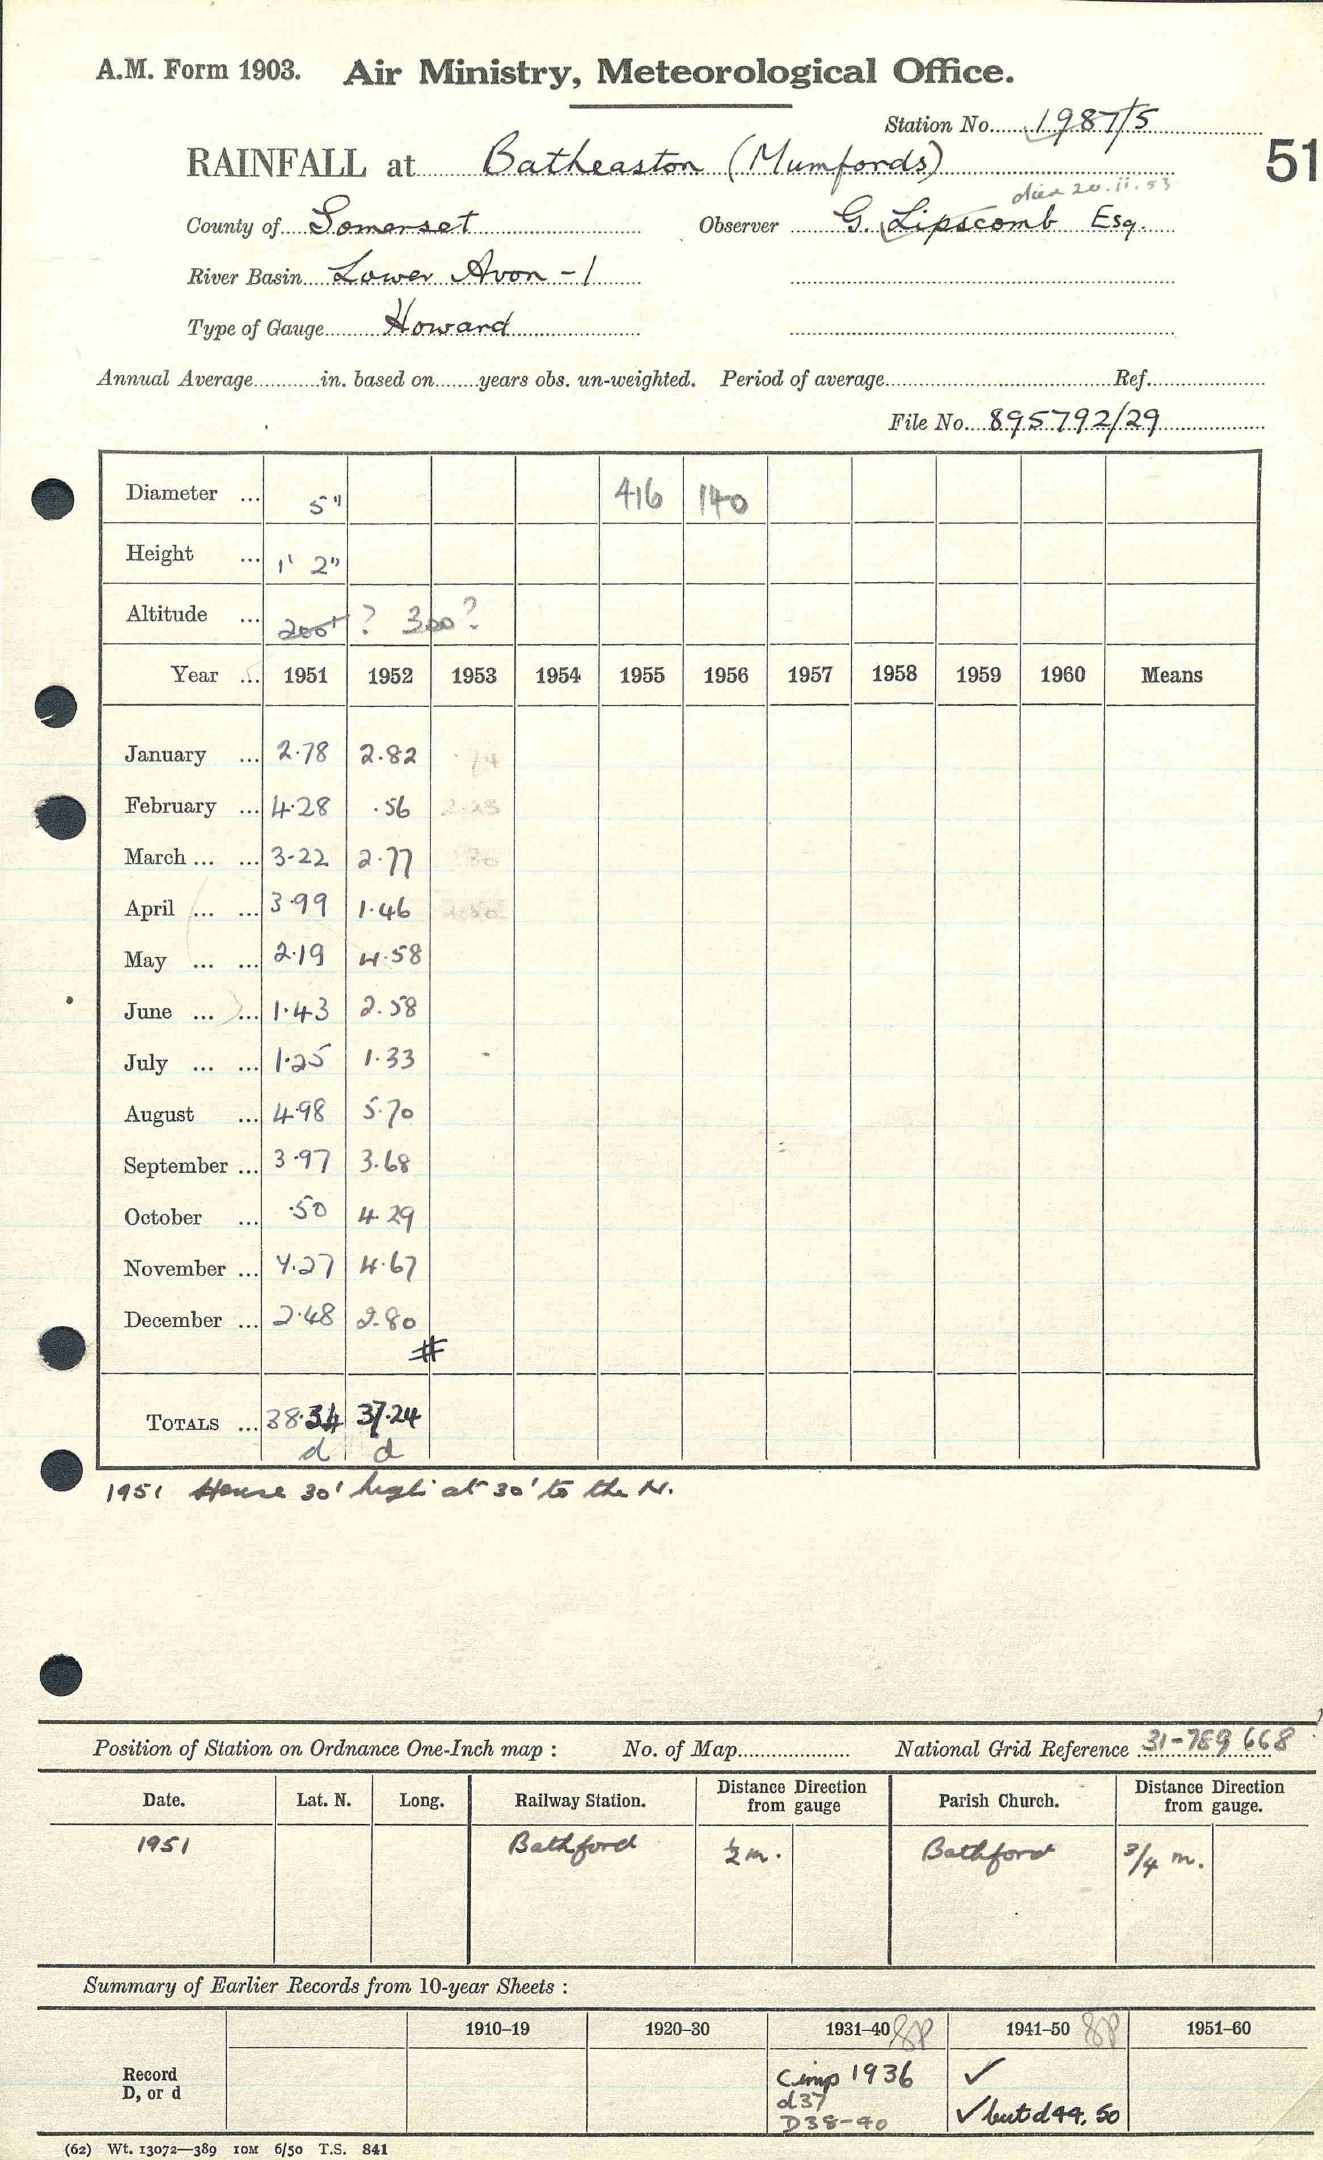 A.M. Form 1903. Air Ministry, Meteorological Office.
Station No. 1987/5
RAINFALL at Batheaston (Mumfords) 51
died 20.11.53
County of Somerset Observer G. Lipscomb Esq.
River Basin Lower Avon - 1
Type of Gauge Howard
Annual Average in. based on years obs. un-weighted. Period of average Ref.
File No. 895792/29
Diameter ... 5" 416 140
Height ... 1' 2"
Altitude ... 200+ ? 300 ?
Year ... 1951 1952 1953 1954 1955 1956 1957 1958 1959 1960 Means
January ... 2.78 2.82
February ... 4.28 .56 2.23
March ... ... 3.22 2.77
April ... ... 3.99 1.46 2.50
May ... ... 2.19 4.58
June ... ... 1.43 2.58
July ... ... 1.25 1.33 -
August ... 4.98 5.70
September ... 3.97 3.68
October ... .50 4.29
November ... 7.27 4.67
December ... 2.48 2.80
#
TOTALS ... 38.34 37.24
d d
1951 House 30' high at 30' to the N.
Position of Station on Ordnance One-Inch map : No. of Map National Grid Reference 31-789 668
Date. Lat. N. Long. Railway Station. Distance Direction from gauge Parish Church. Distance Direction from gauge.
1951 Bathford ½ m. Bathford 3/4 m.
Summary of Earlier Records from 10-year Sheets :
1910–19 1920–30 1931–40 1941–50 1951–60
Record
D, or d
Cimp 1936 ✓
d37
D38-40 ✓ but d44. 50
(62) Wt. 13072—389 10M 6/50 T.S. 841